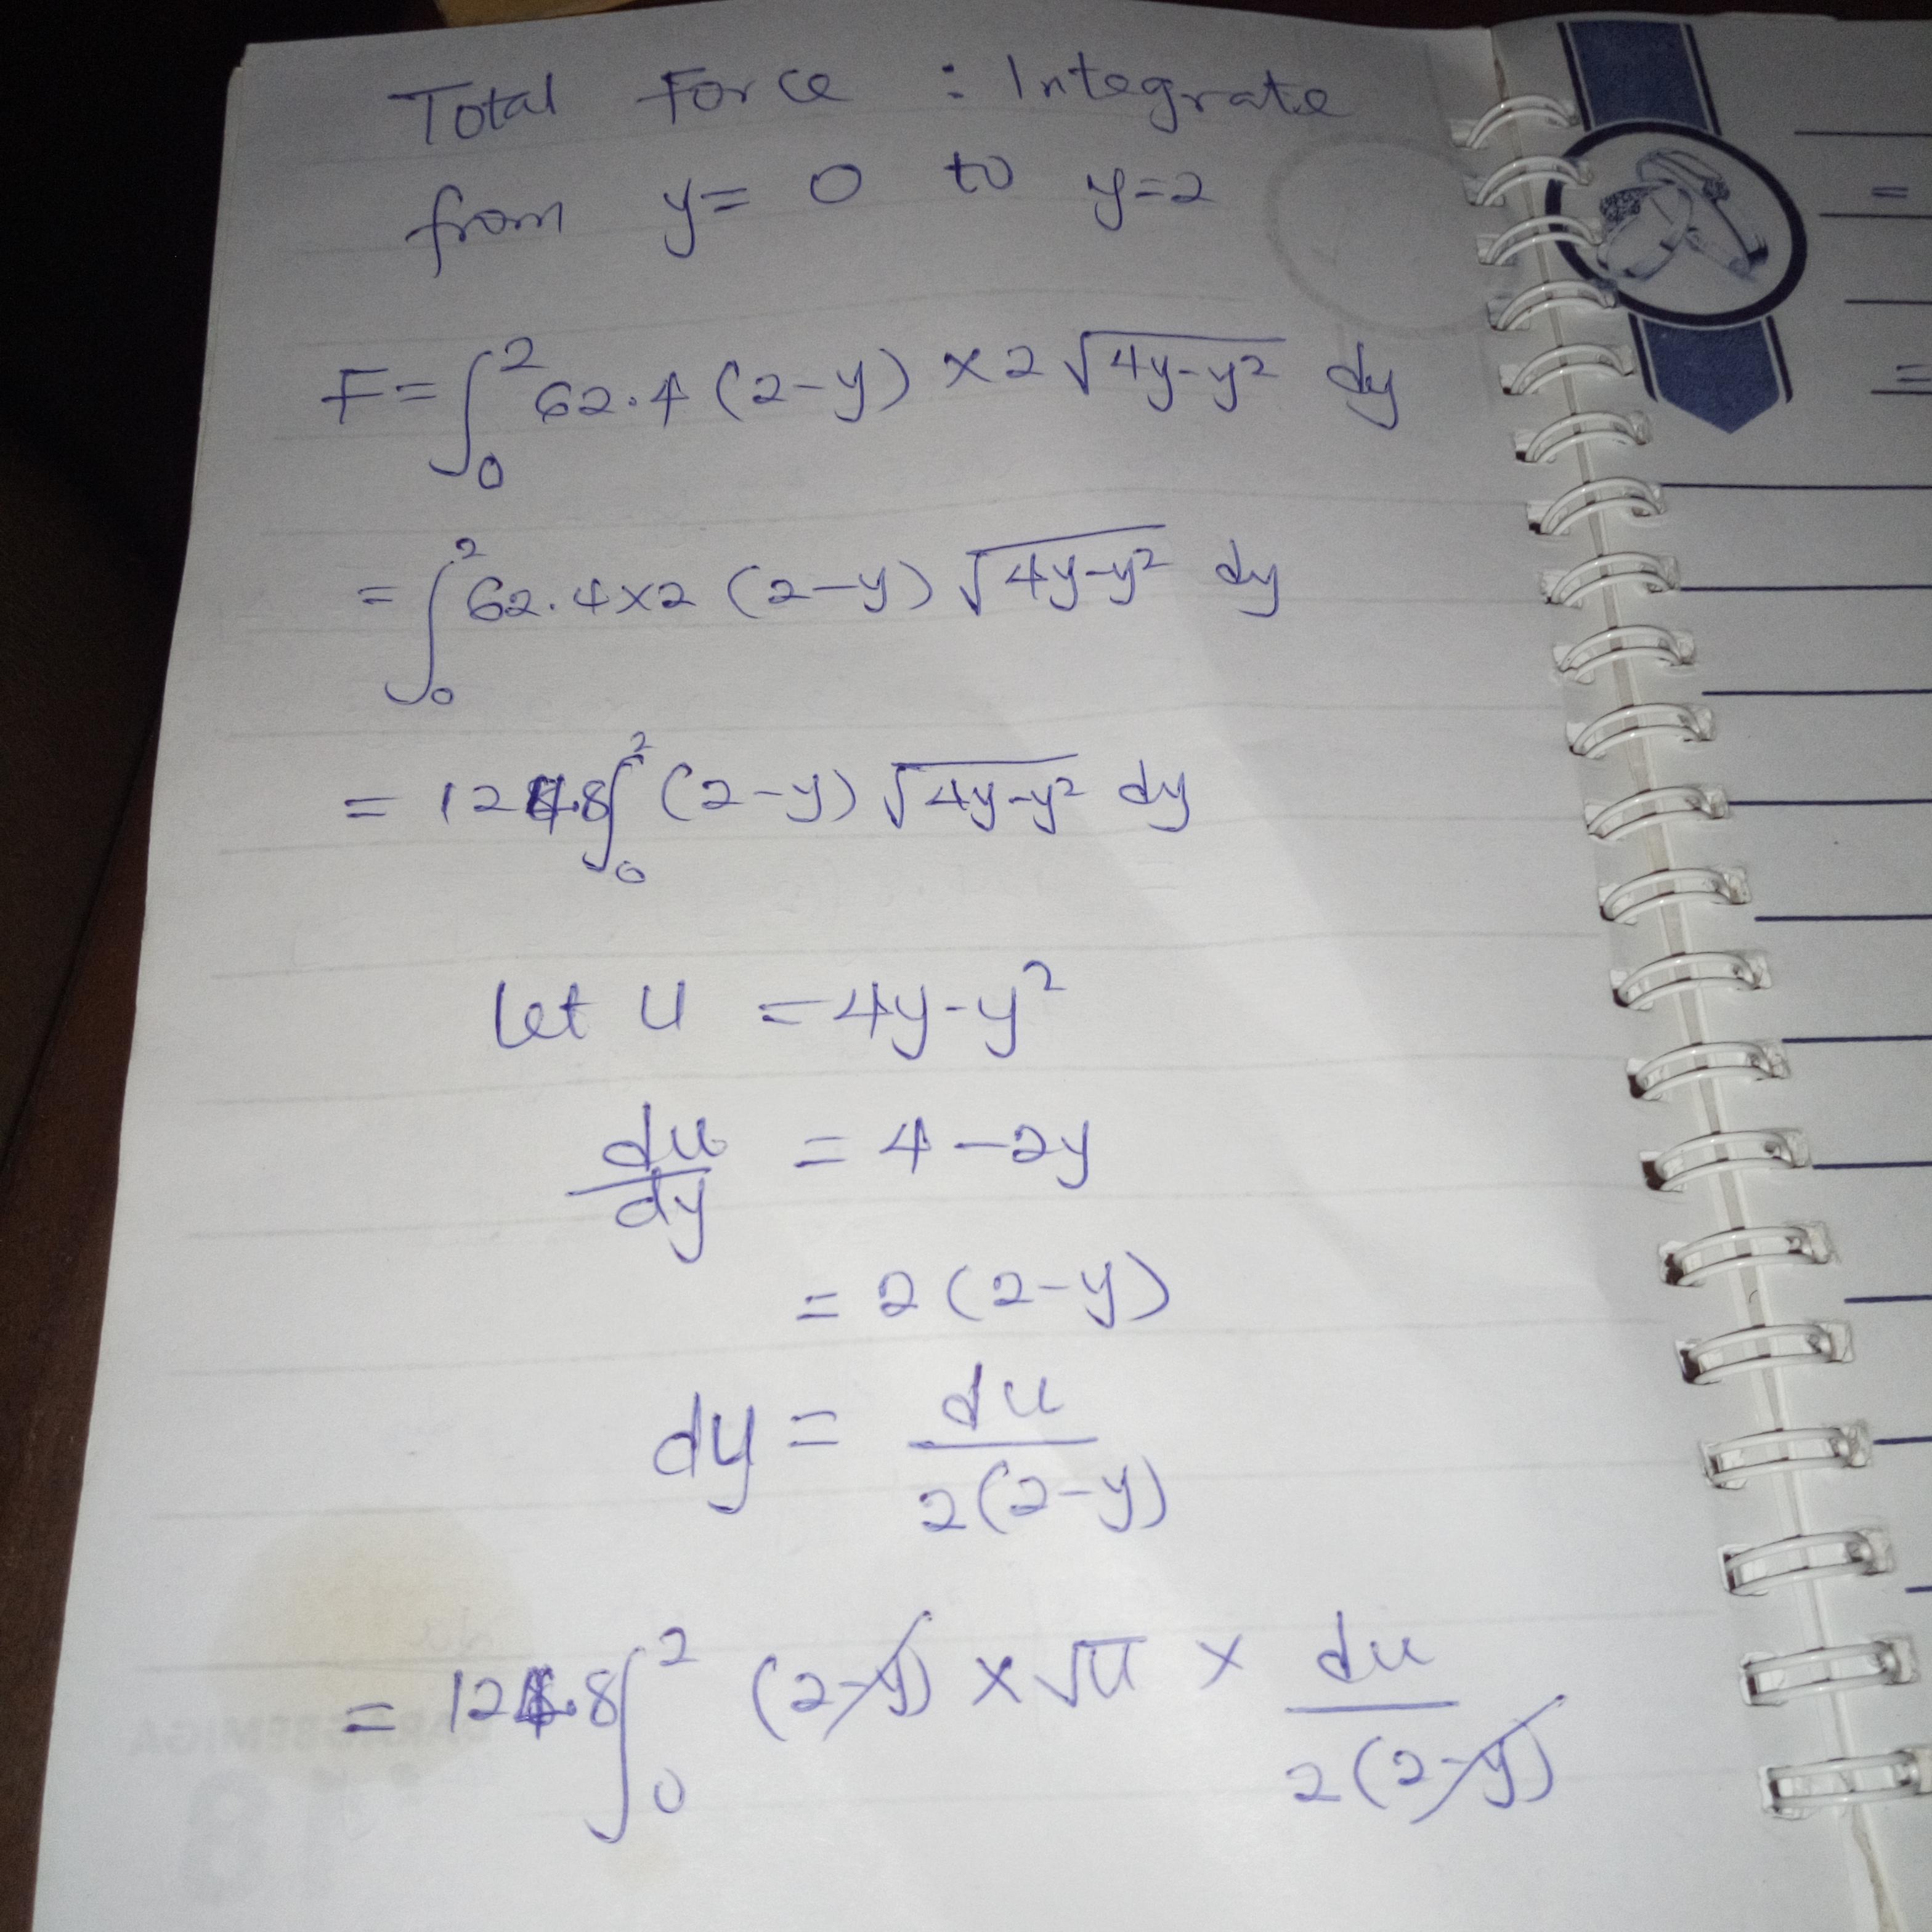 Total Force : Integrate
from y= 0 to y=2
F=∫₀² 62.4 (2-y) ×2 √(4y-y²) dy
= ∫₀² 62.4×2 (2-y) √(4y-y²) dy
= 124.8∫₀² (2-y) √(4y-y²) dy
Let U = 4y-y²
du/dy = 4-2y
= 2(2-y)
dy = du/2(2-y)
= 124.8∫₀² (2-y) × √U × du/2(2-y)
=
=